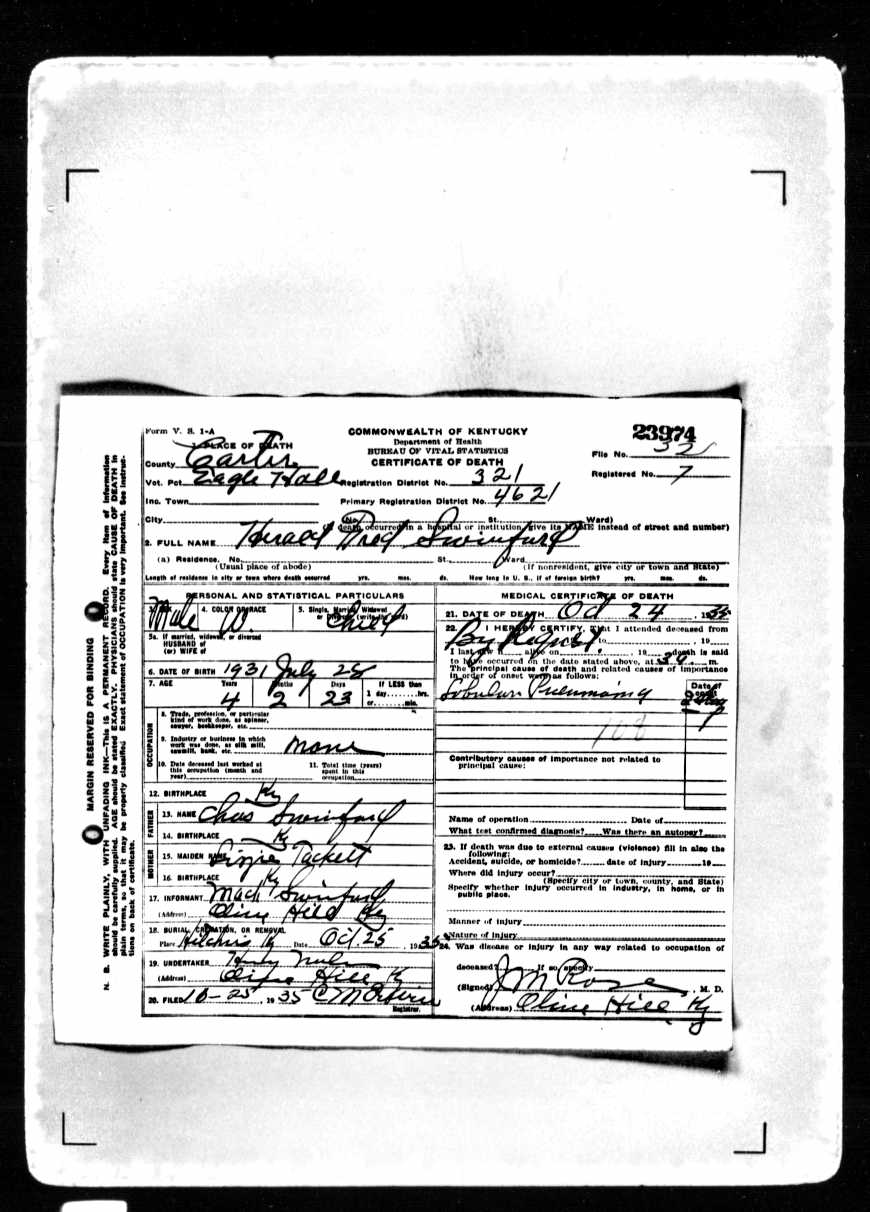 Form V. S. 1-A
COMMONWEALTH OF KENTUCKY
Department of Health
BUREAU OF VITAL STATISTICS
CERTIFICATE OF DEATH
23974
File No. 32
Registered No. 7
1. PLACE OF DEATH
County Carter
Vot. Pct Eagle Hall Registration District No. 321
Inc. Town Primary Registration District No. 4621
City (No. St., Ward)
(If death occurred in a hospital or institution, give its NAME instead of street and number)
2. FULL NAME Swinford
(a) Residence, No. St., Ward
(Usual place of abode) (If nonresident, give city or town and State)
Length of residence in city or town where death occurred yrs. mos. ds. How long in U. S., if of foreign birth? yrs. mos. ds.
PERSONAL AND STATISTICAL PARTICULARS
3. SEX 4. COLOR OR RACE 5. Single, Married, Widowed
or Divorced (write the word)
Male W. Child
5a. If married, widowed, or divorced
HUSBAND of
(or) WIFE of
6. DATE OF BIRTH 1931 July 28
7. AGE Years Months Days If LESS than
1 day hrs.
or min.
4 2 23
OCCUPATION
8. Trade, profession, or particular
kind of work done, as spinner,
sawyer, bookkeeper, etc.
9. Industry or business in which
work was done, as silk mill,
sawmill, bank, etc. None
10. Date deceased last worked at
this occupation (month and
year)
11. Total time (years)
spent in this
occupation
12. BIRTHPLACE Ky
FATHER
13. NAME Chas Swinford
14. BIRTHPLACE Ky
MOTHER
15. MAIDEN NAME Lizzie Tackett
16. BIRTHPLACE Ky
17. INFORMANT Mack Swinford
(Address) Olive Hill Ky
18. BURIAL, CREMATION, OR REMOVAL
Place Ky Date Oct. 25, 1935
19. UNDERTAKER
(Address) Olive Hill Ky
20. FILED 10-25, 1935 C M
Registrar.
MEDICAL CERTIFICATE OF DEATH
21. DATE OF DEATH Oct 24, 1935
22. I HEREBY CERTIFY, That I attended deceased from
By to , 19
I last saw h alive on , 19 death is said
to have occurred on the date stated above, at m.
The principal cause of death and related causes of importance
in order of onset were as follows:
Date of onset
Lobular Pneumonia
108
Contributory causes of importance not related to
principal cause:
Name of operation Date of
What test confirmed diagnosis? Was there an autopsy?
23. If death was due to external causes (violence) fill in also the
following:
Accident, suicide, or homicide? date of injury 19
Where did injury occur?
(Specify city or town, county, and State)
Specify whether injury occurred in industry, in home, or in
public place.
Manner of injury
Nature of injury
24. Was disease or injury in any way related to occupation of
deceased? If so, specify
(Signed) J M Rose, M. D.
(Address) Olive Hill Ky
MARGIN RESERVED FOR BINDING
N. B. WRITE PLAINLY, WITH UNFADING INK—THIS IS A PERMANENT RECORD. Every item of information
should be carefully supplied. AGE should be stated EXACTLY. PHYSICIANS should state CAUSE OF DEATH in
plain terms, so that it may be properly classified. Exact statement of OCCUPATION is very important. See instruc-
tions on back of certificate.